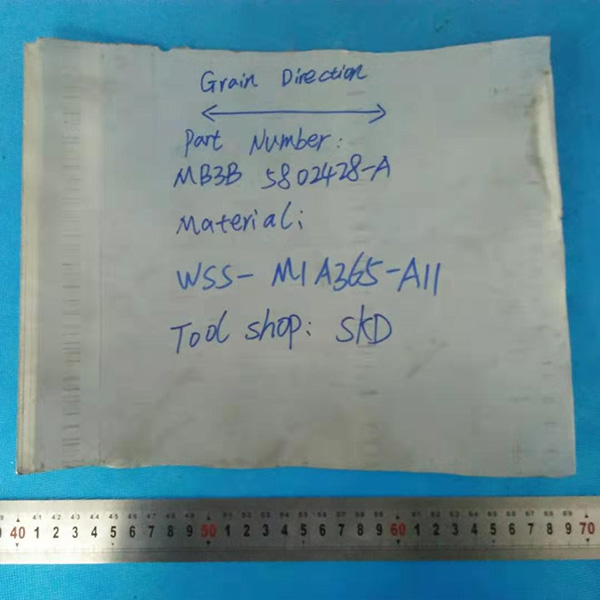 Grain Direction
Part Number:
MB3B 5802428-A
Material:
WSS- M1A365-A11
Tool shop: SKD
40 1 2 3 4 5 6 7 8 9 50 1 2 3 4 5 6 7 8 9 60 1 2 3 4 5 6 7 8 9 70